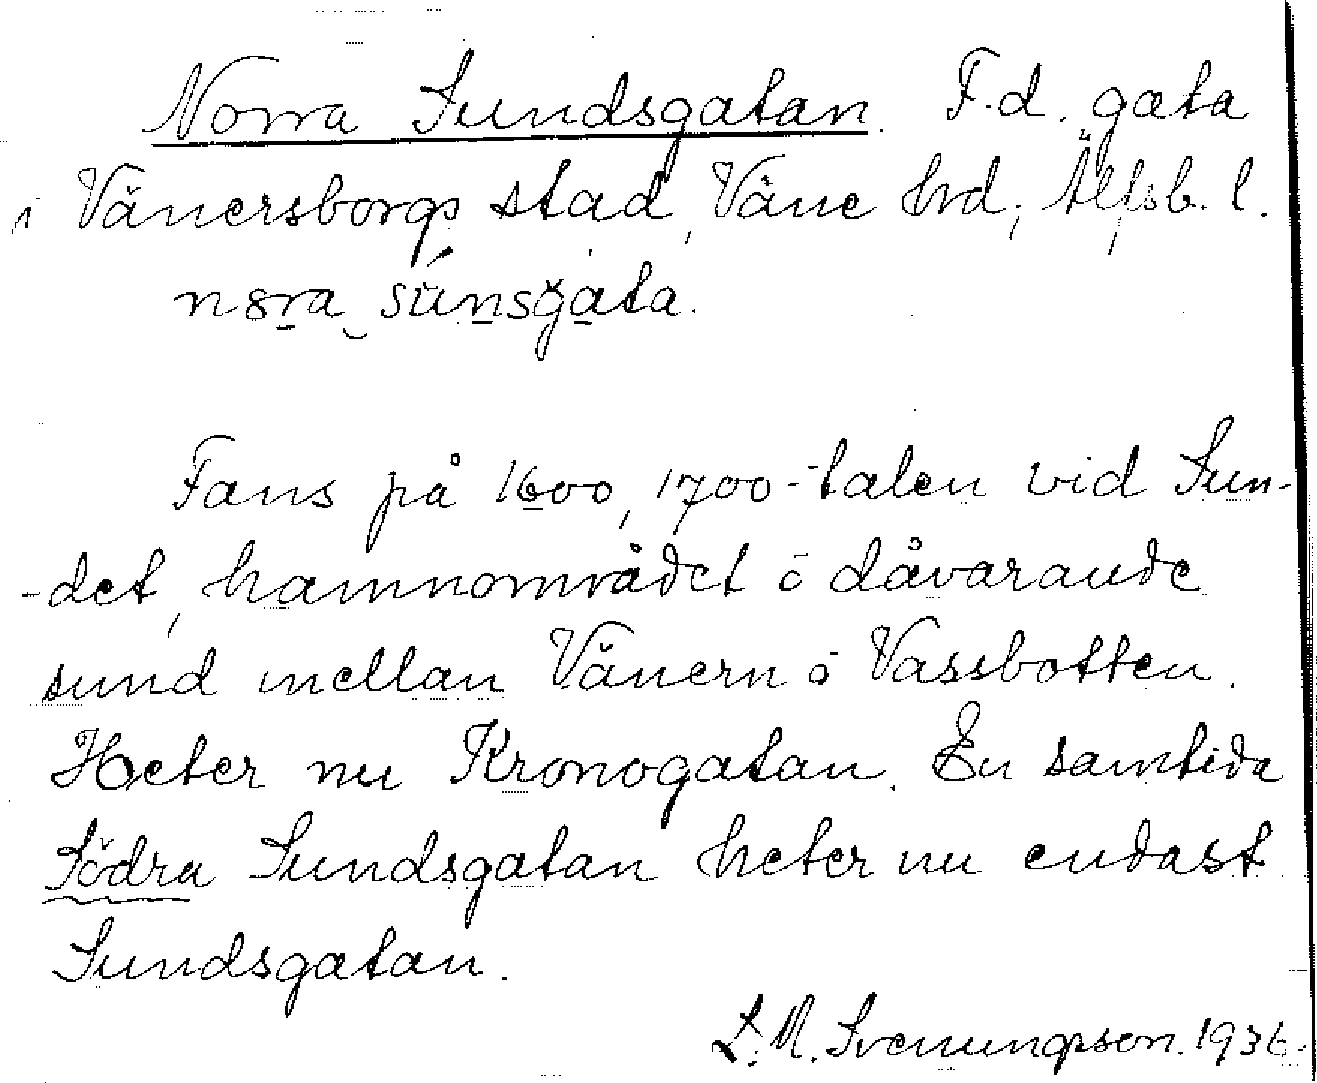 Norra Sundsgatan. F.d. gata
i Vänersborgs stad, Väne hrd, Älfsb. l.
Fans på 1600, 1700-talen vid Sun-
-det, hamnområdet ō dåvarande
sund mellan Vänern ō Vassbotten.
Heter nu Kronogatan. En samtida
Södra Sundsgatan heter nu endast
Sundsgatan.
L. M. Svenungsson. 1936.